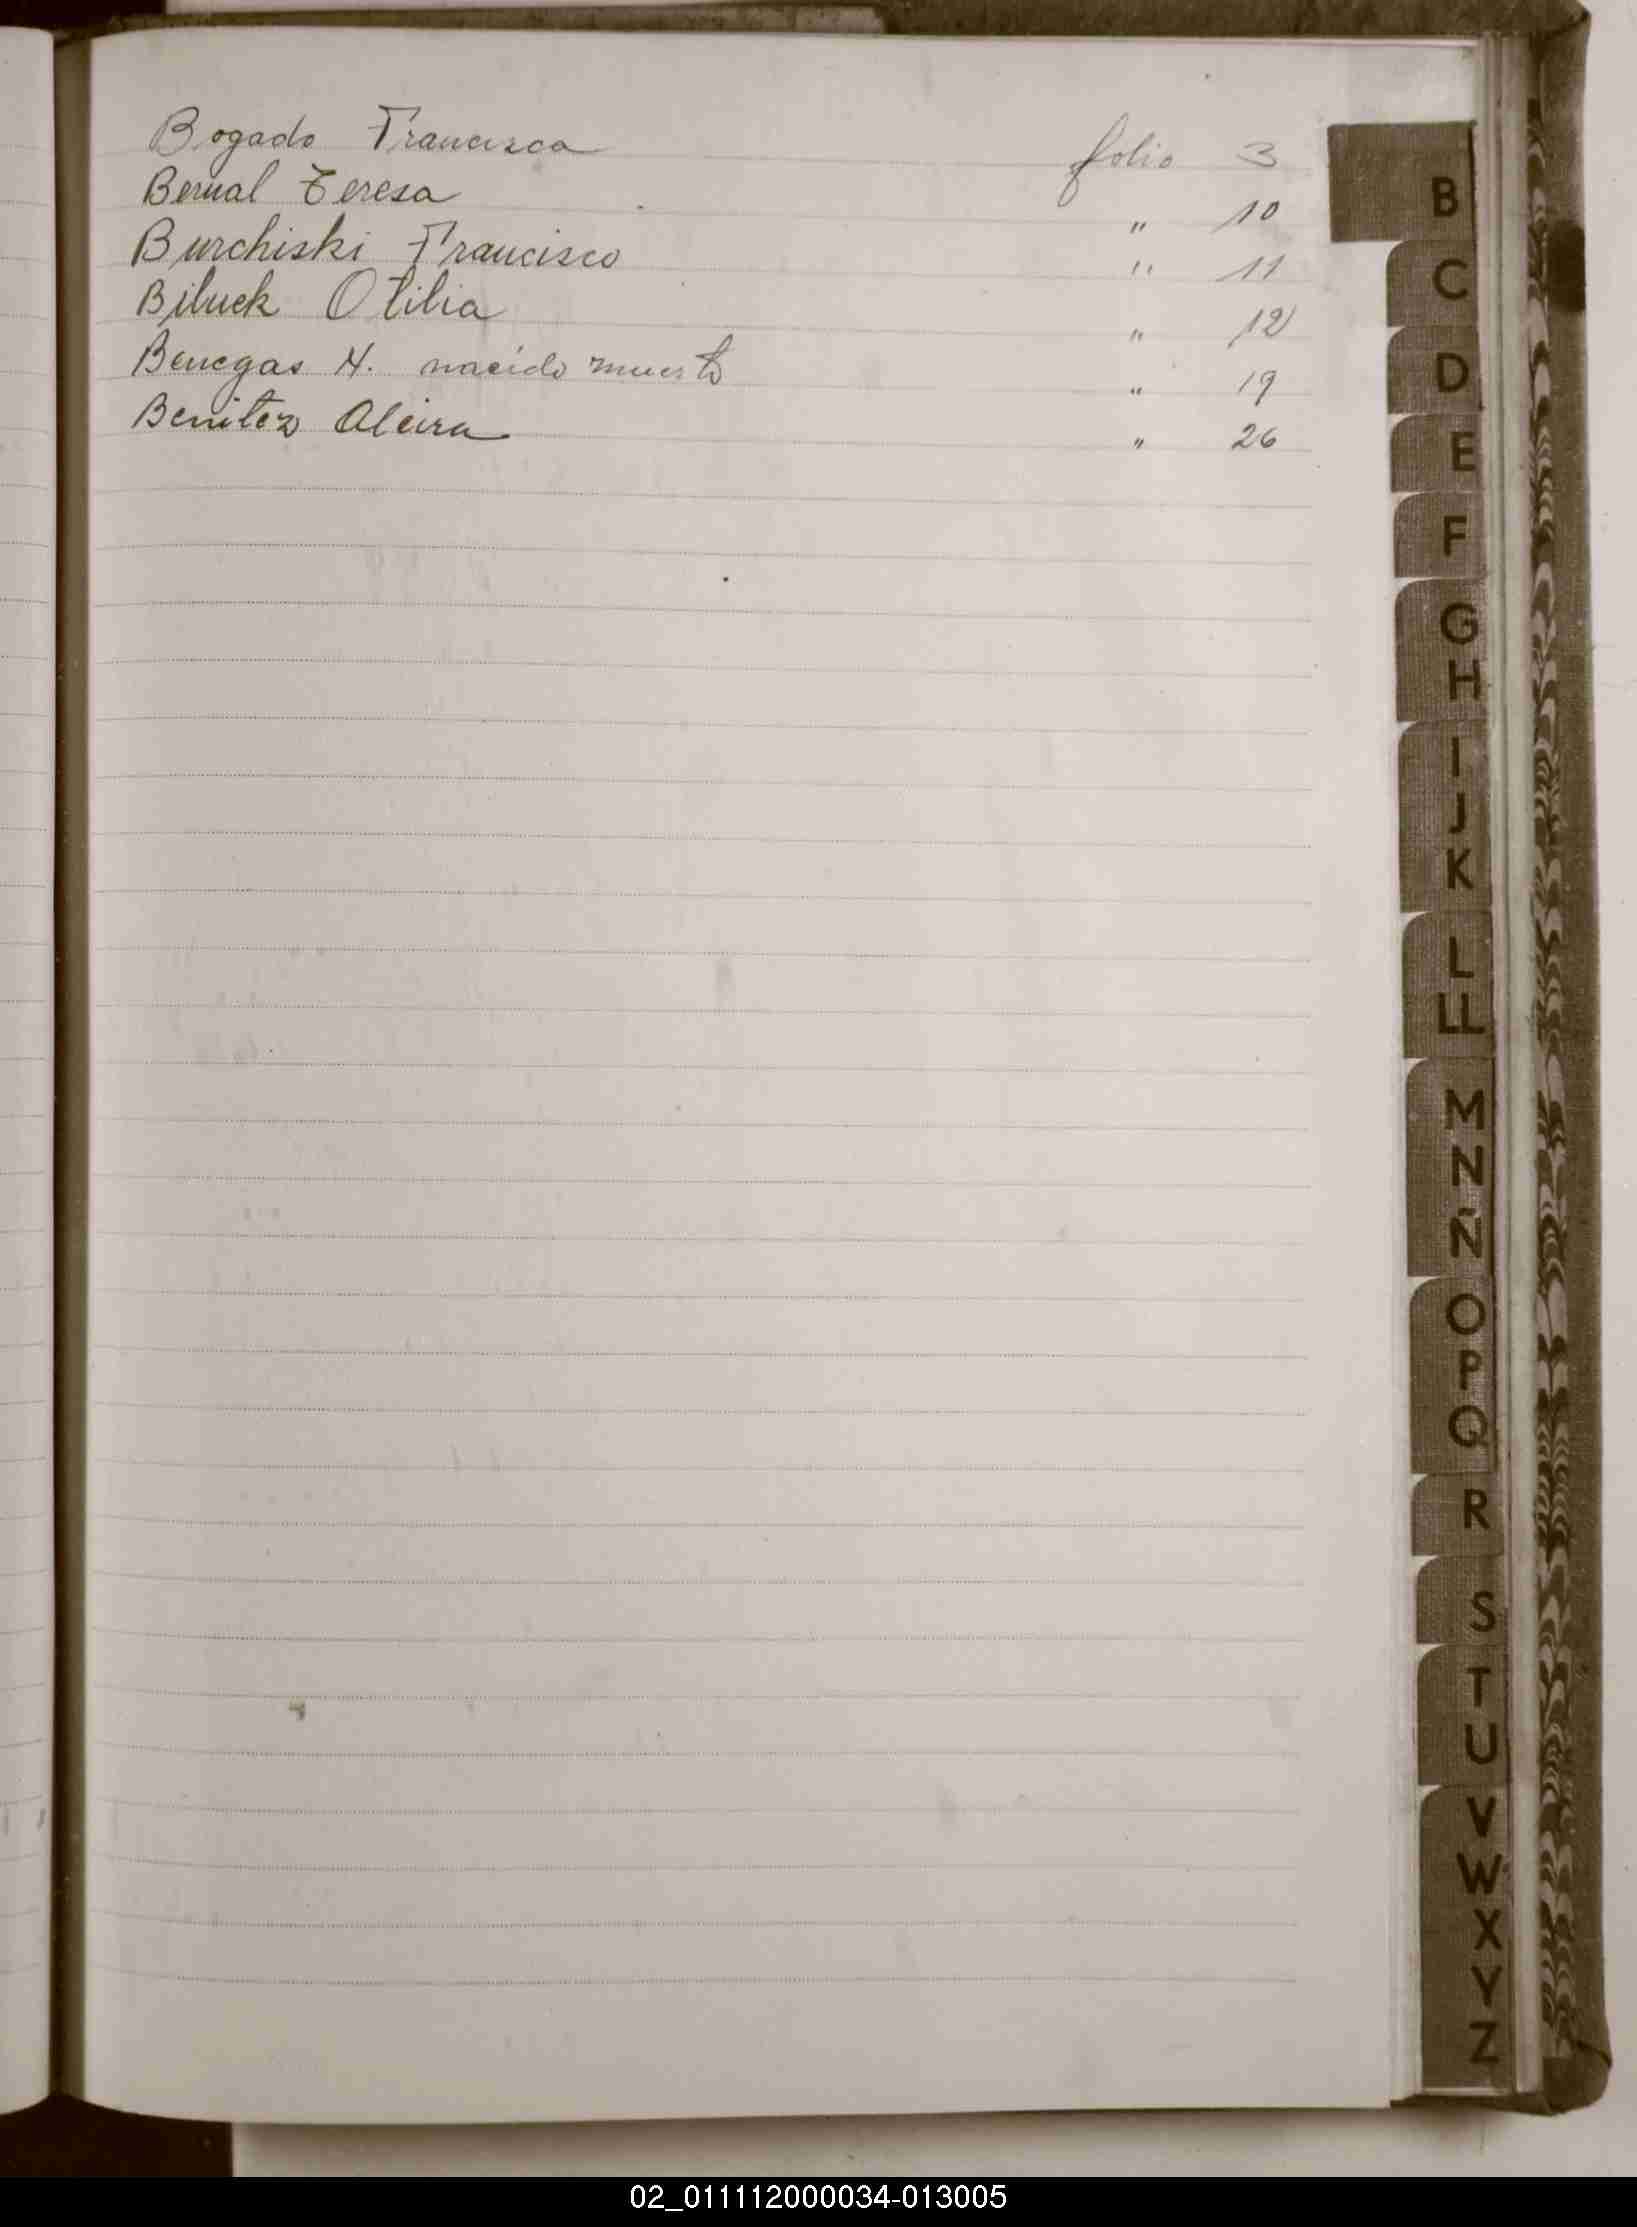 Bogado Francisca folio 3
Bernal Teresa " 10
Burchiski Francisco " 11
Biluck Otilia " 12
Benegas N. nacido muerto " 19
Benitez Alcira " 26
B
C
D
E
F
G
H
I
J
K
L
LL
M
N
Ñ
O
P
Q
R
S
T
U
V
W
X
Y
Z
02_011112000034-013005